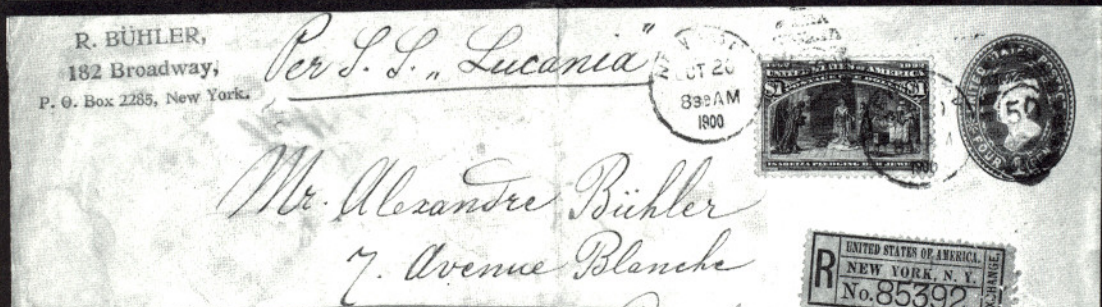 R. BÜHLER,
182 Broadway,
P. O. Box 2285, New York.
Per S. S. „Lucania"
OCT 20
8 30 AM
1900
1492 1892
UNITED STATES OF AMERICA
$1 $1
ISABELLA PLEDGING HER JEWELS
UNITED STATES POSTAGE
FOUR
50
Mr. Alexandre Bühler
7. Avenue Blanche
R
UNITED STATES OF AMERICA.
NEW YORK, N. Y.
No. 85392